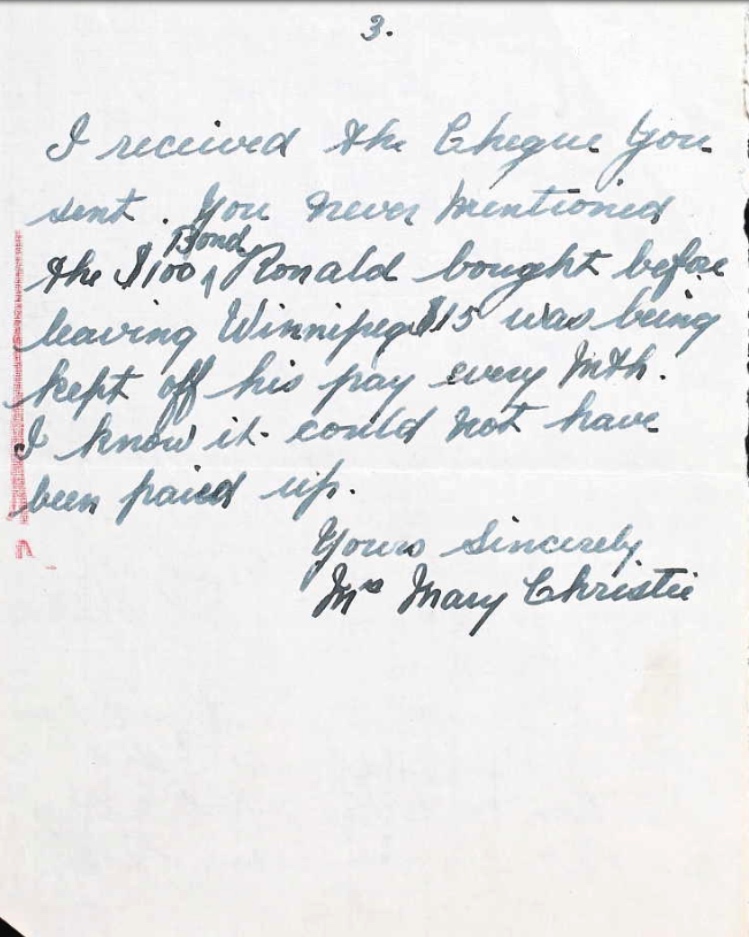 3.
I received the Cheque you
sent. You never mentioned
the $100 Bond Ronald bought before
leaving Winnipeg $15 was being
kept off his pay every Mth.
I know it could not have
been paid up.
Yours Sincerely
Mrs Mary Christie